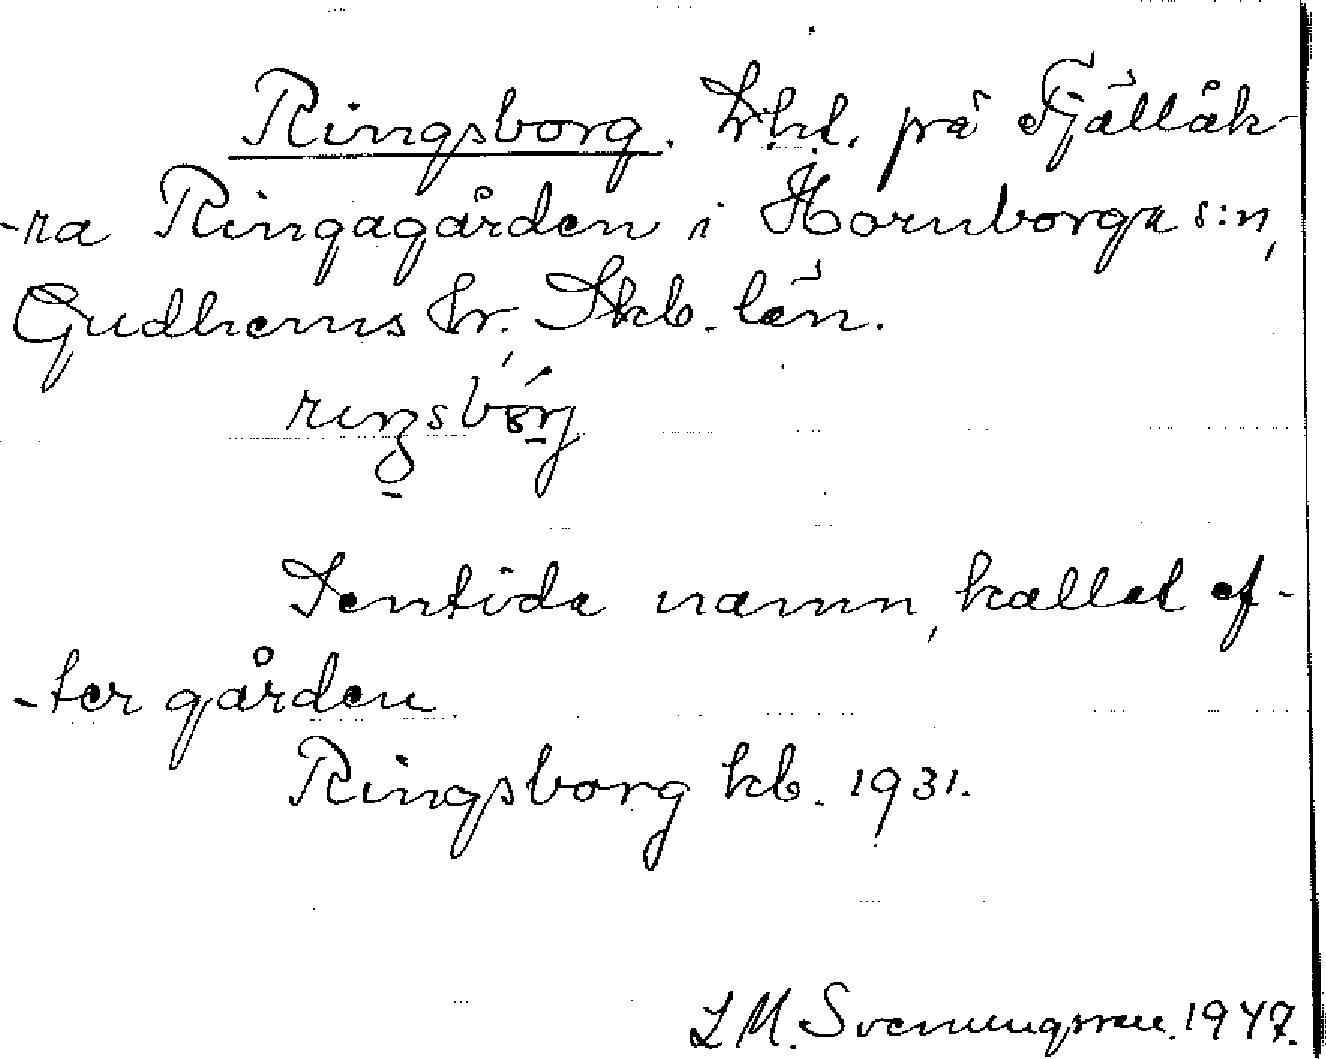 Ringsborg. Lht. på Fjällåk-
-ra Ringagården i Hornborga s:n,
Gudhems hr. Skb. län.
Sentida namn, kallat ef-
-ter gården
Ringsborg kb. 1931.
L M. Svenungsson. 1947.